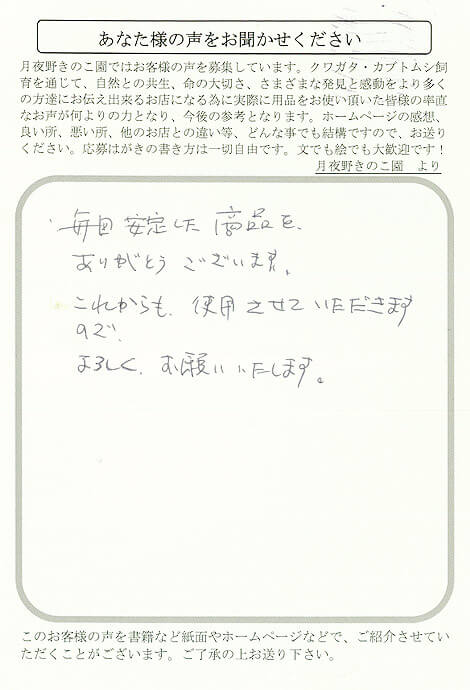 あなた様の声をお聞かせください
月夜野きのこ園ではお客様の声を募集しています。クワガタ・カブトムシ飼
育を通じて、自然との共生、命の大切さ、さまざまな発見と感動をより多く
の方達にお伝え出来るお店になる為に実際に用品をお使い頂いた皆様の率直
なお声が何よりの力となり、今後の参考となります。ホームページの感想、
良い所、悪い所、他のお店との違い等、どんな事でも結構ですので、お送り
ください。応募はがきの書き方は一切自由です。文でも絵でも大歓迎です！
月夜野きのこ園　より
毎回 安定した 商品を、
ありがとう ございます。
これからも、使用 させて いただきます
ので、
よろしく、お願い いたします。
このお客様の声を書籍など紙面やホームページなどで、ご紹介させてい
ただくことがございます。ご了承の上お送り下さい。